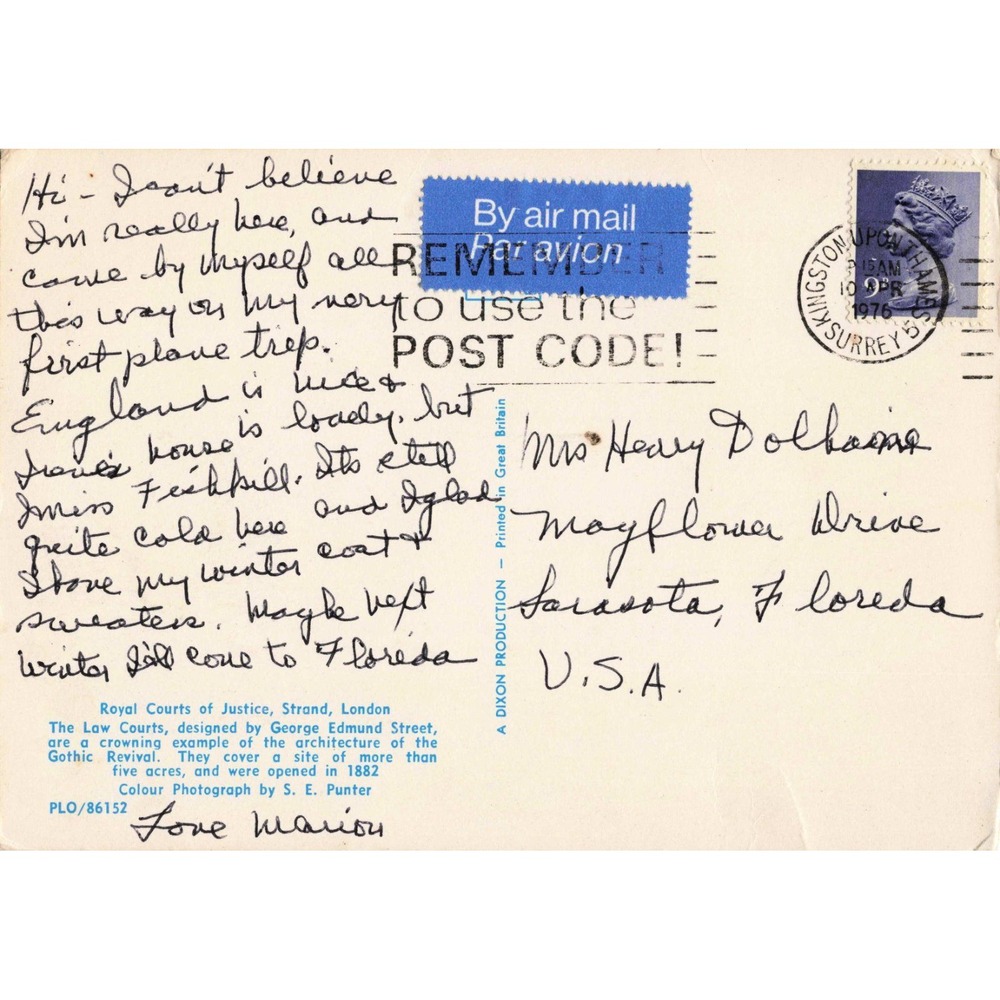 Hi - I can't believe
I'm really here, and
came by myself all
this way on my very
first plane trip.
England is nice &
Irene's house is lovely, but
I miss Fishkill. Its still
quite cold here and I glad
I have my winter coat &
sweaters. Maybe next
winter I'll come to Florida
Royal Courts of Justice, Strand, London
The Law Courts, designed by George Edmund Street,
are a crowning example of the architecture of the
Gothic Revival. They cover a site of more than
five acres, and were opened in 1882
Colour Photograph by S. E. Punter
PLO/86152
Love Marion
A DIXON PRODUCTION — Printed in Great Britain
By air mail
Par avion
REMEMBER
to use the
POST CODE!
KINGSTON UPON THAMES
15AM
10 APR
1976
SURREY 5
Mrs Henry
Mayflower Drive
Sarasota, Florida
U.S.A.